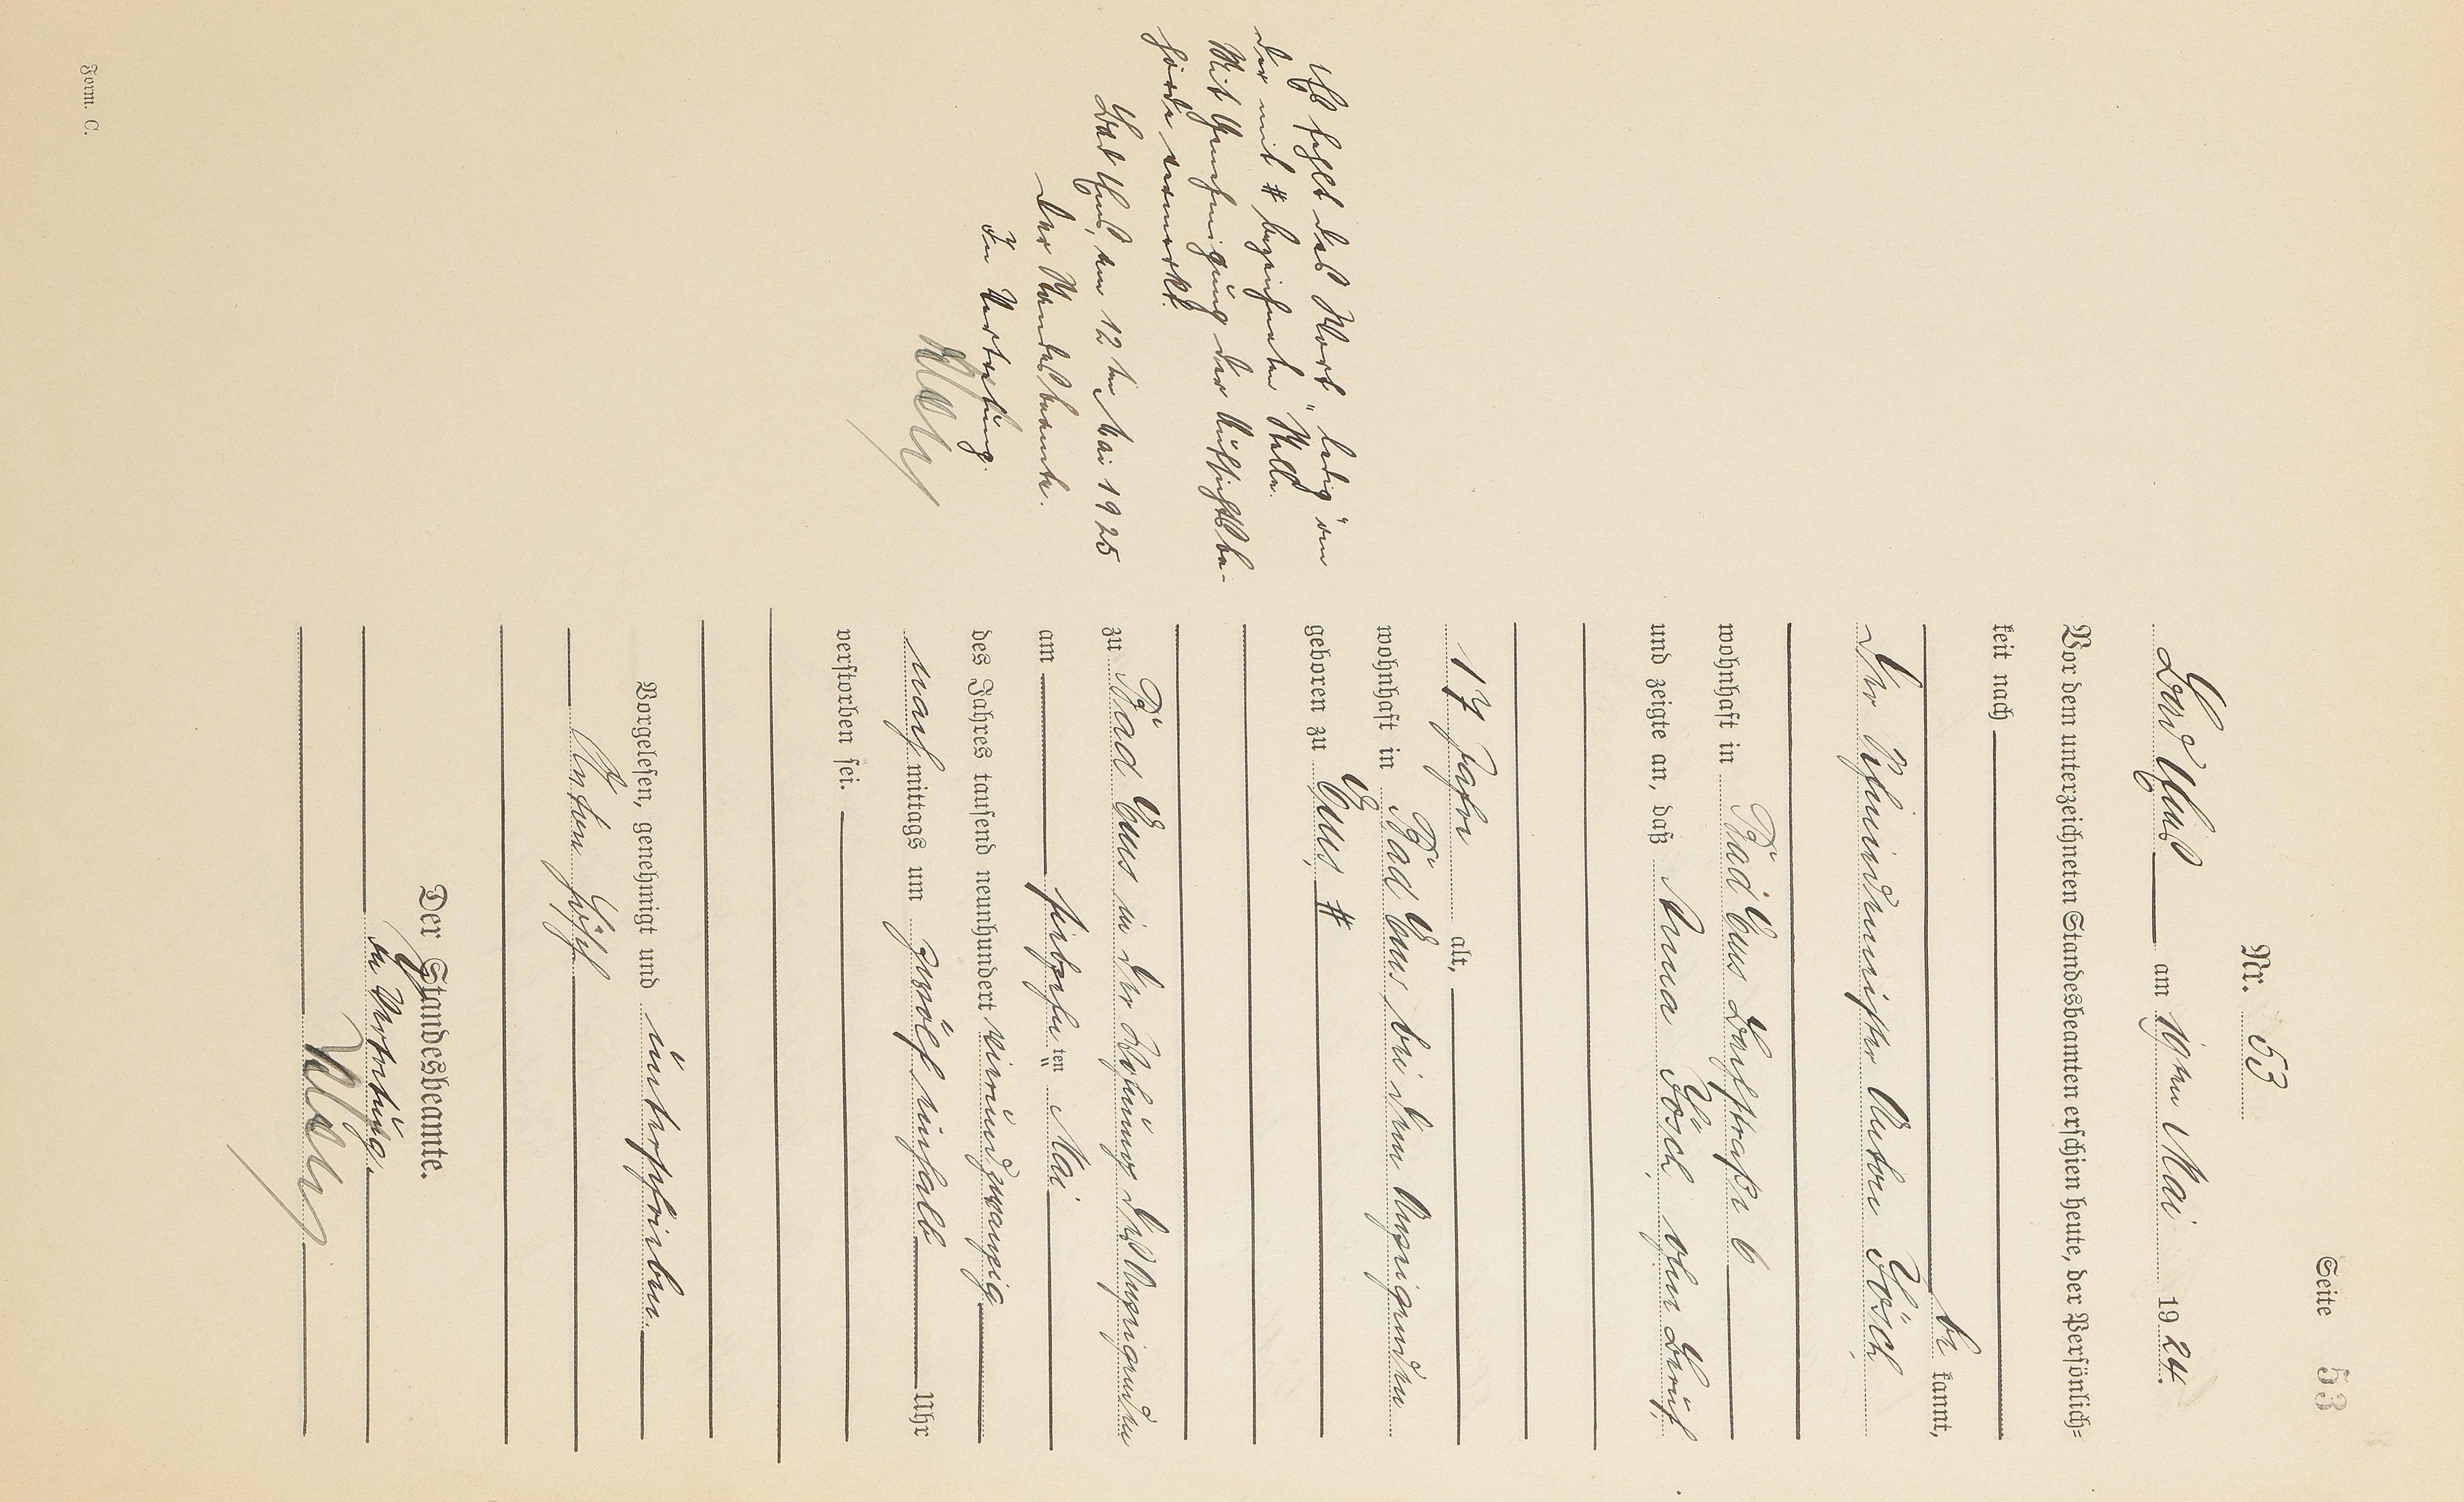 Seite 53
Nr. 53
Bad Ems am 19ten Mai 1924.
Vor dem unterzeichneten Standesbeamten erschien heute, der Persönlich=
keit nach
be kannt,
der Schneidermeister Anton Jösch,
wohnhaft in Bad Ems Bachstraße 6
und zeigte an, daß Anna Jösch, ohne Beruf,
17 Jahre alt,
wohnhaft in Bad Ems bei dem Anzeigenden
geboren zu Ems, #
zu Bad Ems in der Wohnung des Anzeigenden
am siebzehn ten Mai
des Jahres tausend neunhundert vierundzwanzig
nach mittags um zwölf einhalb Uhr
verstorben sei.
Vorgelesen, genehmigt und unterschrieben.
Anton Jösch
Der Standesbeamte.
In Vertretung.
Es fehlt das Wort "ledig" an
der mit # bezeichneten Stelle.
Mit Genehmigung der Aufsichtsbe-
hörde vermerkt.
Bad Ems, am 12ten Mai 1925
Der Standesbeamte.
In Vertretung.
Form. C.